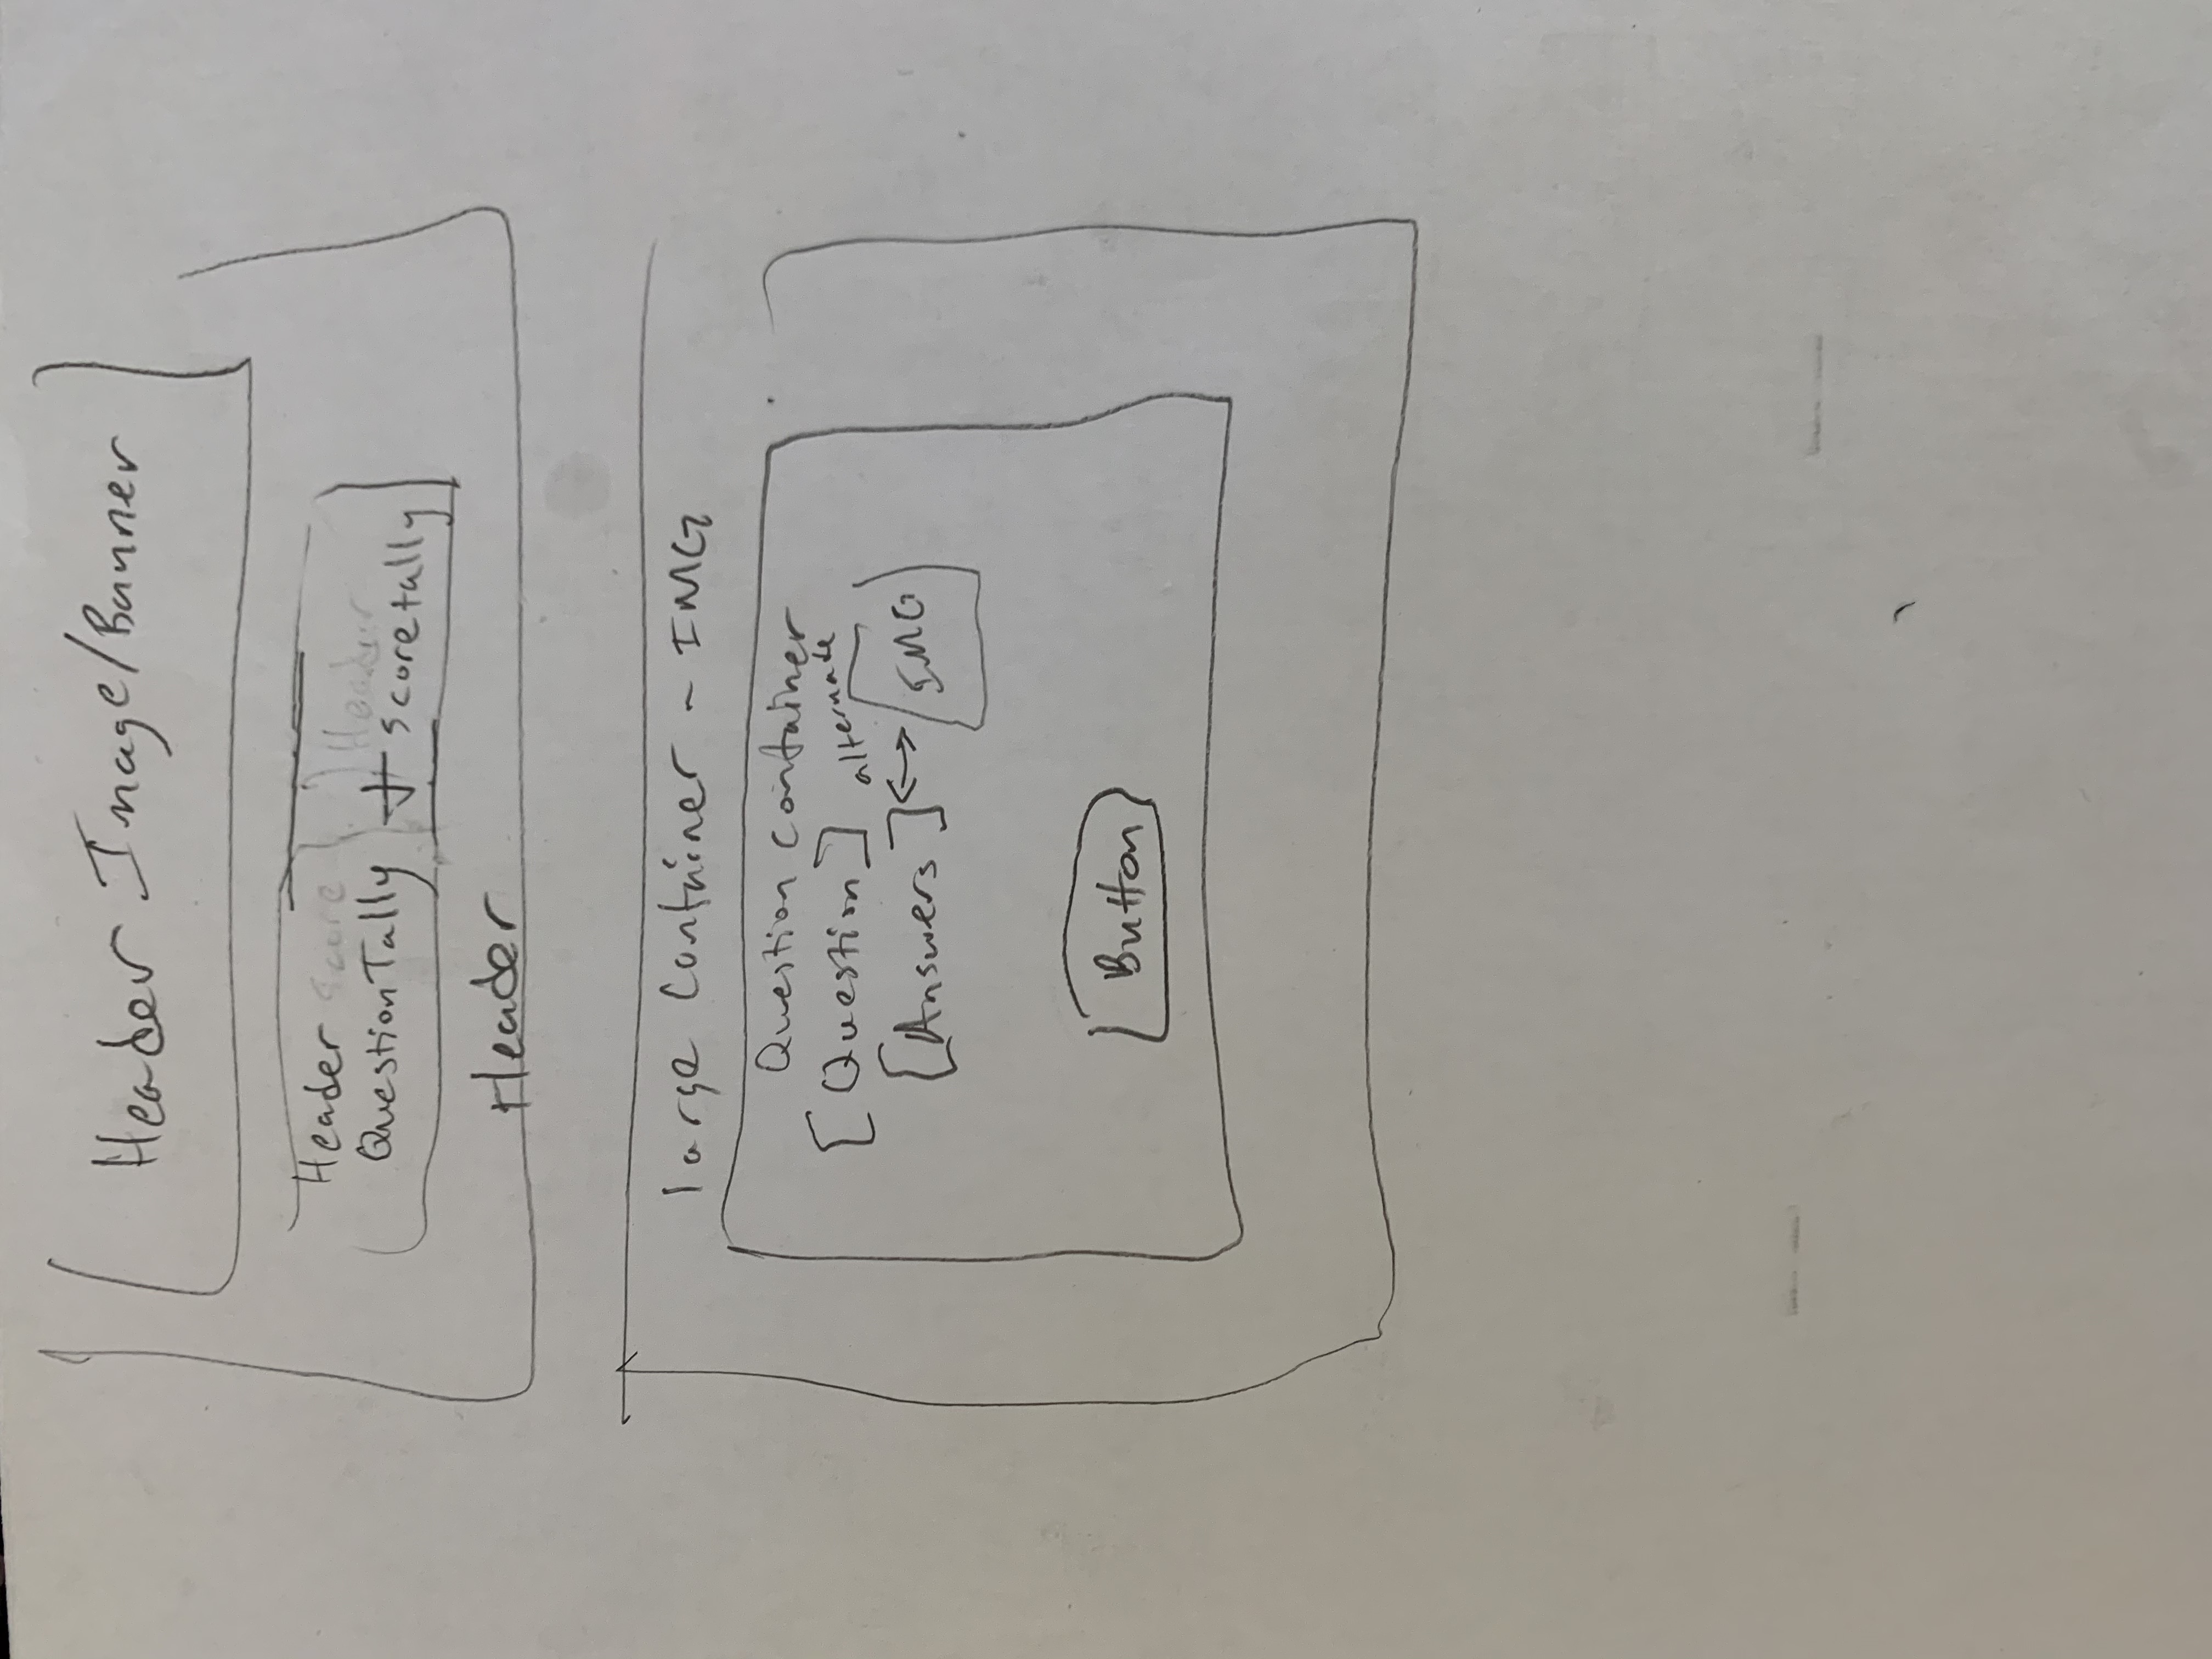 Header Image/Banner
Header
Question Tally + scoretally
Header
large Continer - IMG
Question container
[Question] alternate
[Answers] <-> IMG
Button